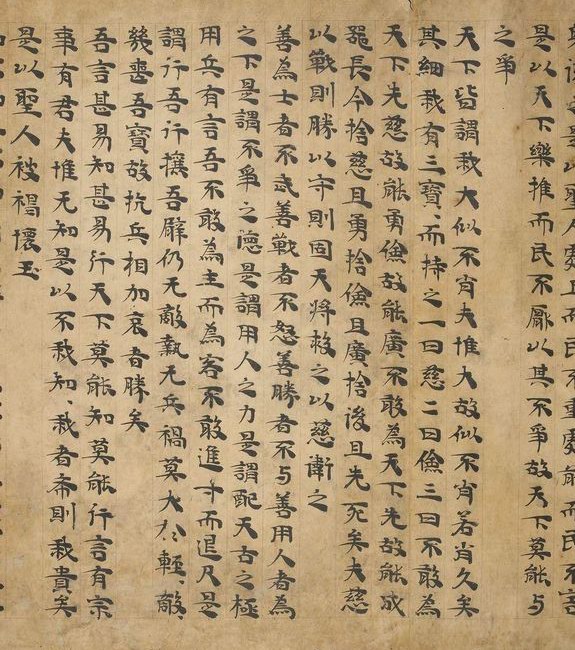 是以聖人處上而民不重處前而民不害
是以天下樂推而民不厭以其不爭故天下莫能与
之爭
天下皆謂我大似不肖夫惟大故似不肖若肖久矣
其細我有三寶、而持之一曰慈二曰儉三曰不敢為
天下先慈故能勇儉故能廣不敢為天下先故能成
器長今捨慈且勇捨儉且廣捨後且先死矣夫慈
以戰則勝以守則固天將救之以慈衛之
善為士者不武善戰者不怒善勝者不与善用人者為
之下是謂不爭之德是謂用人之力是謂配天古之極
用兵有言吾不敢為主而為客不敢進寸而退尺是
謂行吾行攘吾臂仍无敵執无兵禍莫大於輕、敵、
幾喪吾寶故抗兵相加哀者勝矣
吾言甚易知甚易行天下莫能知莫能行言有宗
事有君夫惟无知是以不我知、我者希則我貴矣
是以聖人被褐懷玉